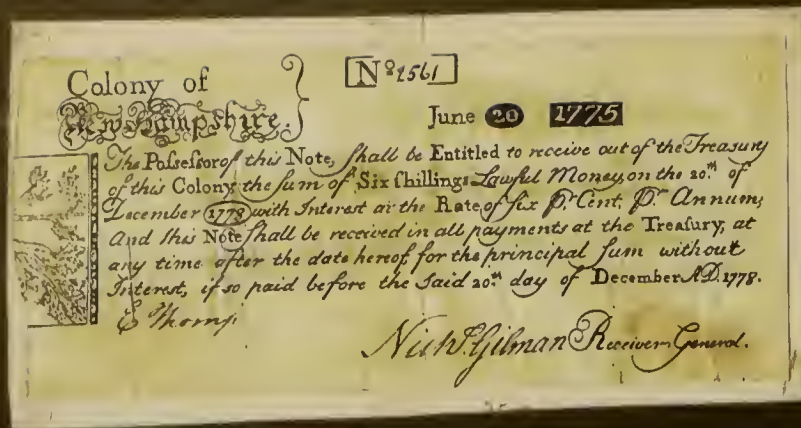 Colony of
New Hampshire.
Nº 1561
June 20 1775
The Poſseſsor of this Note, ſhall be Entitled to receive out of the Treasury
of this Colony the ſum of Six ſhillings Lawful Money, on the 20.th of
December 1778 with Interest at the Rate of ſix Pr. Cent, Pr. Annum;
And this Note ſhall be received in all payments at the Treaſury, at
any time after the date hereof for the principal ſum without
Interest, if so paid before the Said 20.th day of December A.D. 1778.
E Thomp
Nichs. Gilman Receiver General.